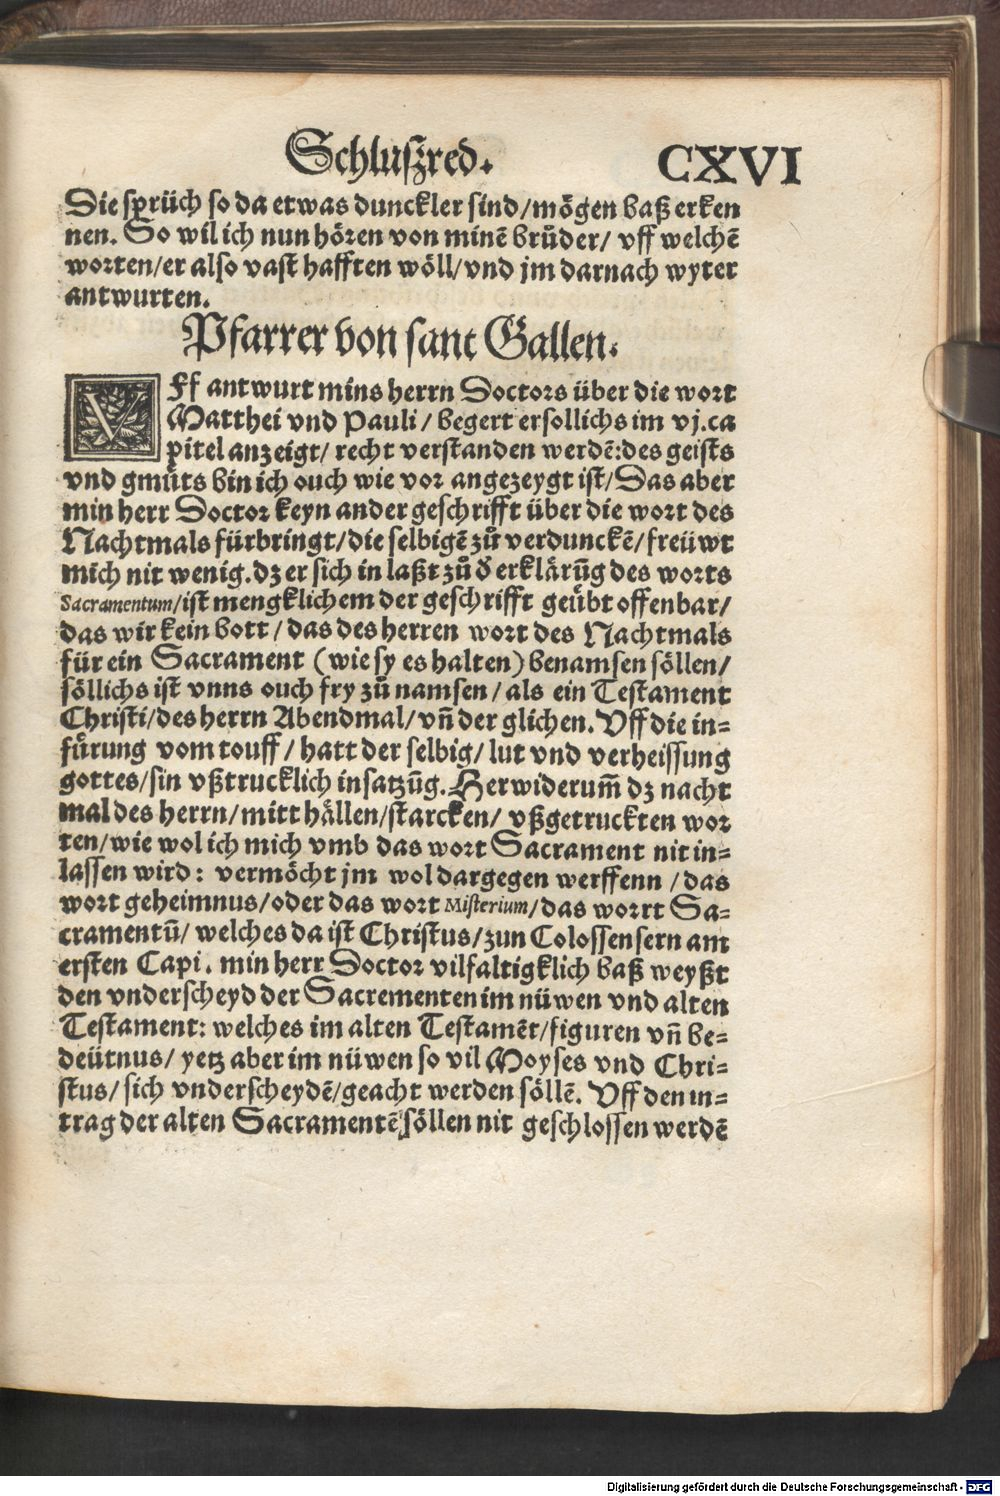 Schluszred. CXVI
Die sprüch so da etwas dunckler sind/mögen baß erken
nen. So wil ich nun hören von minē brůder/ vff welchē
worten/er also vast hafften wöll/vnd jm darnach wyter
antwurten.
Pfarrer von sant Gallen.
VFf antwurt mins herrn Doctors über die wort
Matthei vnd Pauli/ begert er söllichs im vj. ca
pitel anzeigt/ recht verstanden werdē: des geists
vnd gmůts bin ich ouch wie vor angezeygt ist/Das aber
min herr Doctor keyn ander geschrifft über die wort des
Nachtmals fürbringt/die selbigē zů verdunckē/freüwt
mich nit wenig. dz er sich in laßt zů ð erklärūg des worts
Sacramentum/ist mengklichem der geschrifft geübt offenbar/
das wir kein bott/ das des herren wort des Nachtmals
für ein Sacrament (wie sy es halten) benamsen söllen/
söllichs ist vnns ouch fry zů namsen/als ein Testament
Christi/des herrn Abendmal/vn̄ der glichen. Vff die in-
fůrung vom touff/ hatt der selbig/ lut vnd verheissung
gottes/sin vßtrucklich insatzūg. Herwiderum̄ dz nacht
mal des herrn/mitt hällen/starcken/ vßgetruckten wor
ten/wie wol ich mich vmb das wort Sacrament nit in-
lassen wird: vermöcht jm wol dargegen werffenn /das
wort geheimnus/oder das wort Misterium/das worrt Sa-
cramentū/ welches da ist Christus/zun Colossensern am
ersten Capi. min herr Doctor vilfaltigklich baß weyßt
den vnderscheyd der Sacrementen im nüwen vnd alten
Testament: welches im alten Testamēt/figuren vn̄ be-
deütnus/ yetz aber im nüwen so vil Moyses vnd Chri-
stus/ sich vnderscheydē/geacht werden söllē. Vff den in-
trag der alten Sacramentē/söllen nit geschlossen werdē
Digitalisierung gefördert durch die Deutsche Forschungsgemeinschaft - DFG